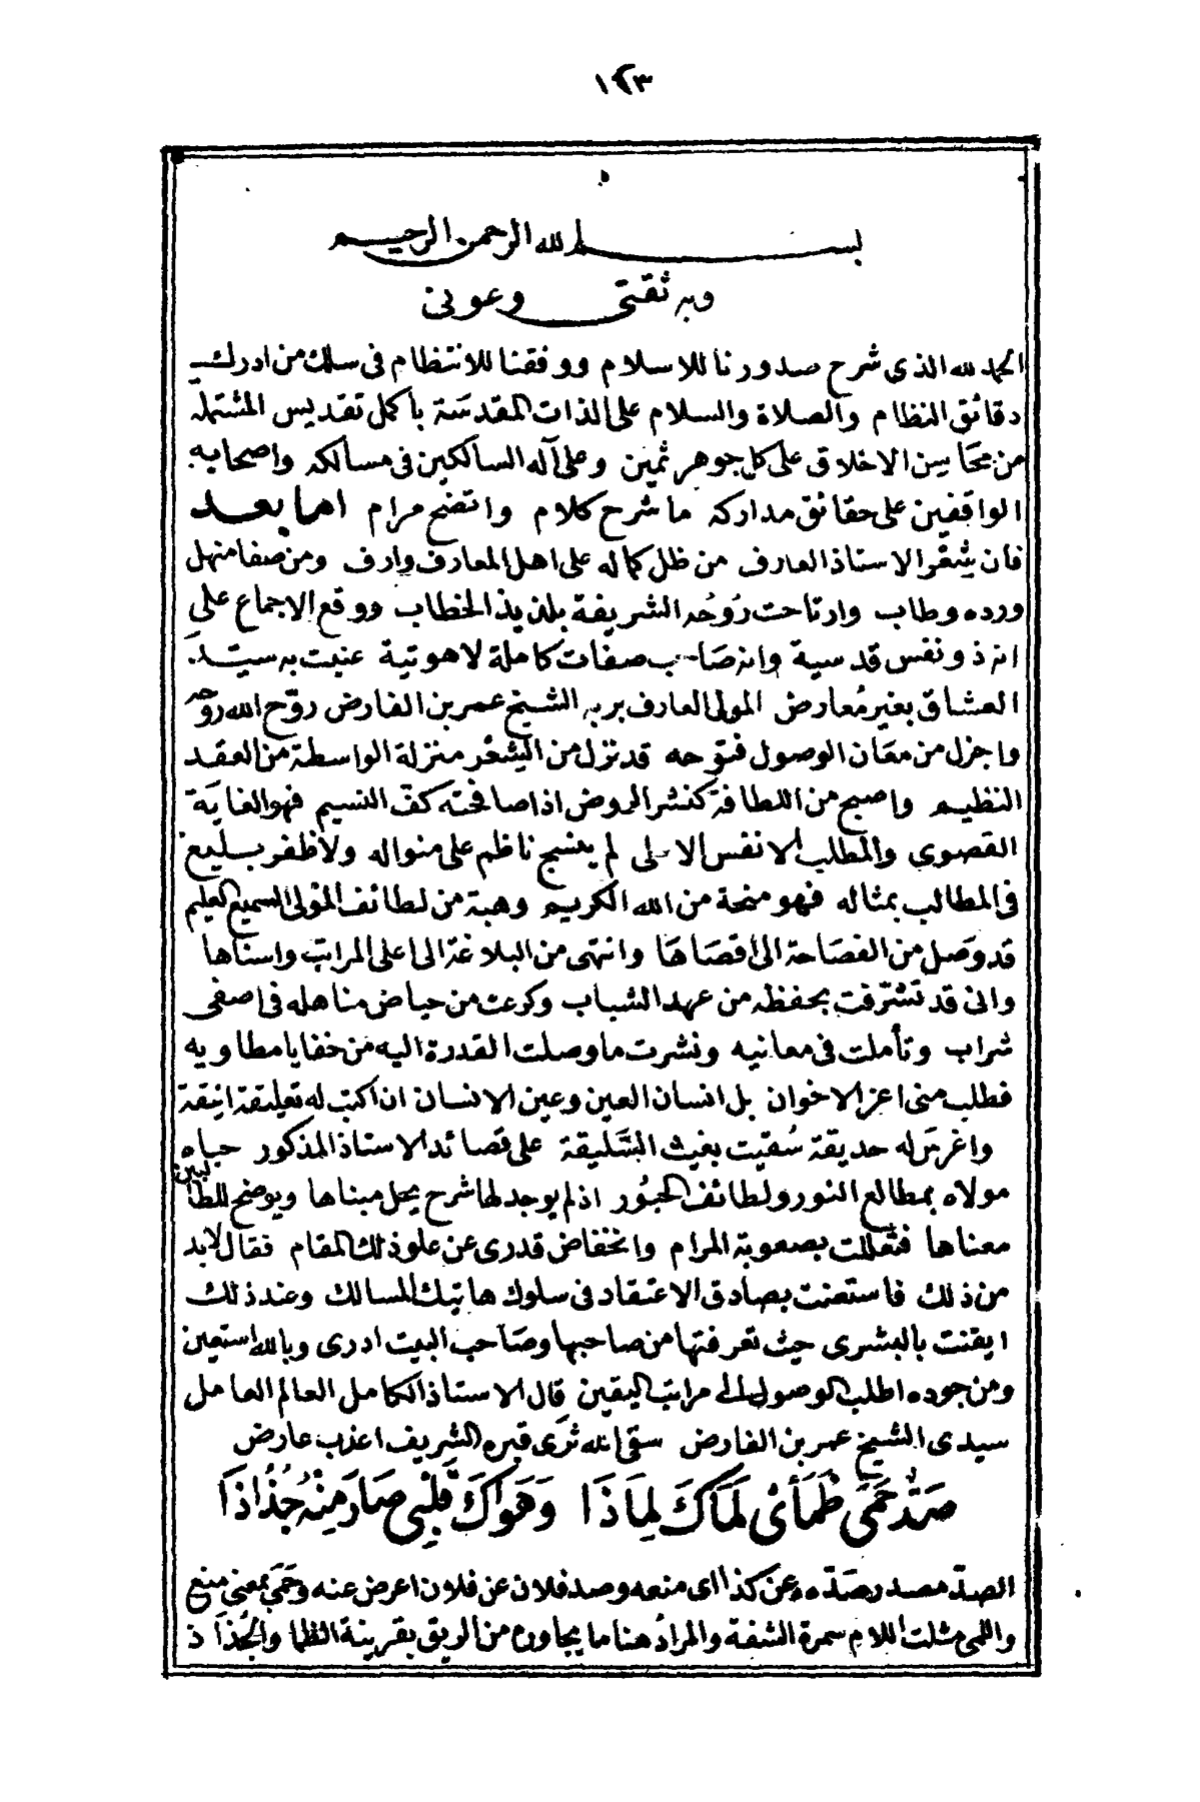 ١٢٣
بسم الله الرحمن الرحيم
وبه ثقتي وعوني
الحمد لله الذي شرح صدورنا للاسلام ووفقنا للانتظام في سلك من ادرك
دقائق النظام والصلاة والسلام على الذات المقدسة باكمل تقديس المشتمله
من محاسن الاخلاق على كل جوهر ثمين وعلى آله السالكين في مسالكه واصحابه
الواقفين على حقائق مداركه ما شرح كلام واتضح مرام اما بعد
فان شعر الاستاذ العارف من ظل كماله على اهل المعارف وارف ومن صفا منهل
ورده وطاب وارتاحت روحه الشريفة بلذيذ الخطاب ووقع الاجماع على
انه ذو نفس قدسية وانه صاحب صفات كاملة لاهوتية عنيت به سيد
العشاق بغير معارض المولى العارف بربه الشيخ عمر بن الفارض روح الله روحه
واجزل من مغان الوصول فتوحه قد نزل من الشعر منزلة الواسطة من العقد
النظيم واصبح من اللطافة كنشر الروض اذا صافحته كف النسيم فهو الغاية
القصوى والمطلب الانفس الاعلى لم ينسج ناظم على منواله ولا ظفر بليغ
في المطالب بمثاله فهو منحة من الله الكريم وهبة من لطائف المولى السميع العليم
قد وصل من الفصاحة الى اقصاها وانتهى من البلاغة الى اعلى المراتب واسناها
واني قد تشرفت بحفظه من عهد الشباب وكرعت من حياض مناهله في اصفى
شراب وتأملت في معانيه ونشرت ما وصلت القدرة اليه من خفايا مطاويه
فطلب مني اعز الاخوان بل انسان العين وعين الانسان ان اكتب له تعليقة انيقة
واغرس له حديقة سُقيت بغيث السَّليقة على قصائد الاستاذ المذكور حباه
مولاه بمطالع النور ولطائف الحبُور اذ لم يوجد لها شرح يحل مبناها ويوضح للطالبين
معناها فتعللت بصعوبة المرام وانخفاض قدري عن علو ذلك المقام فقال لابد
من ذلك فاستعنت بصادق الاعتقاد في سلوك هاتيك المسالك وعند ذلك
ايقنت بالبشرى حيث تعرفتها من صاحبها وصاحب البيت ادرى وبالله استعين
ومن جوده اطلب الوصول الى مراتب اليقين قال الاستاذ الكامل العالم العامل
سيدي الشيخ عمر بن الفارض سقى الله ثرى قبره الشريف اعذب عارض
صَدٌّ حَمَى ظَمَأِي لَمَاكَ لِمَاذَا وَهَوَاكَ قَلْبِي صَارَ مِنْهُ جُذَاذَا
الصدّ مصدر صَدّه عن كذا اي منعه وصد فلان عن فلان اعرض عنه وحَمَى بمعنى منع
واللمى مثلث اللام سمرة الشفة والمراد هنا ما يجاوره من الريق بقرينة الظما والجُذاذ